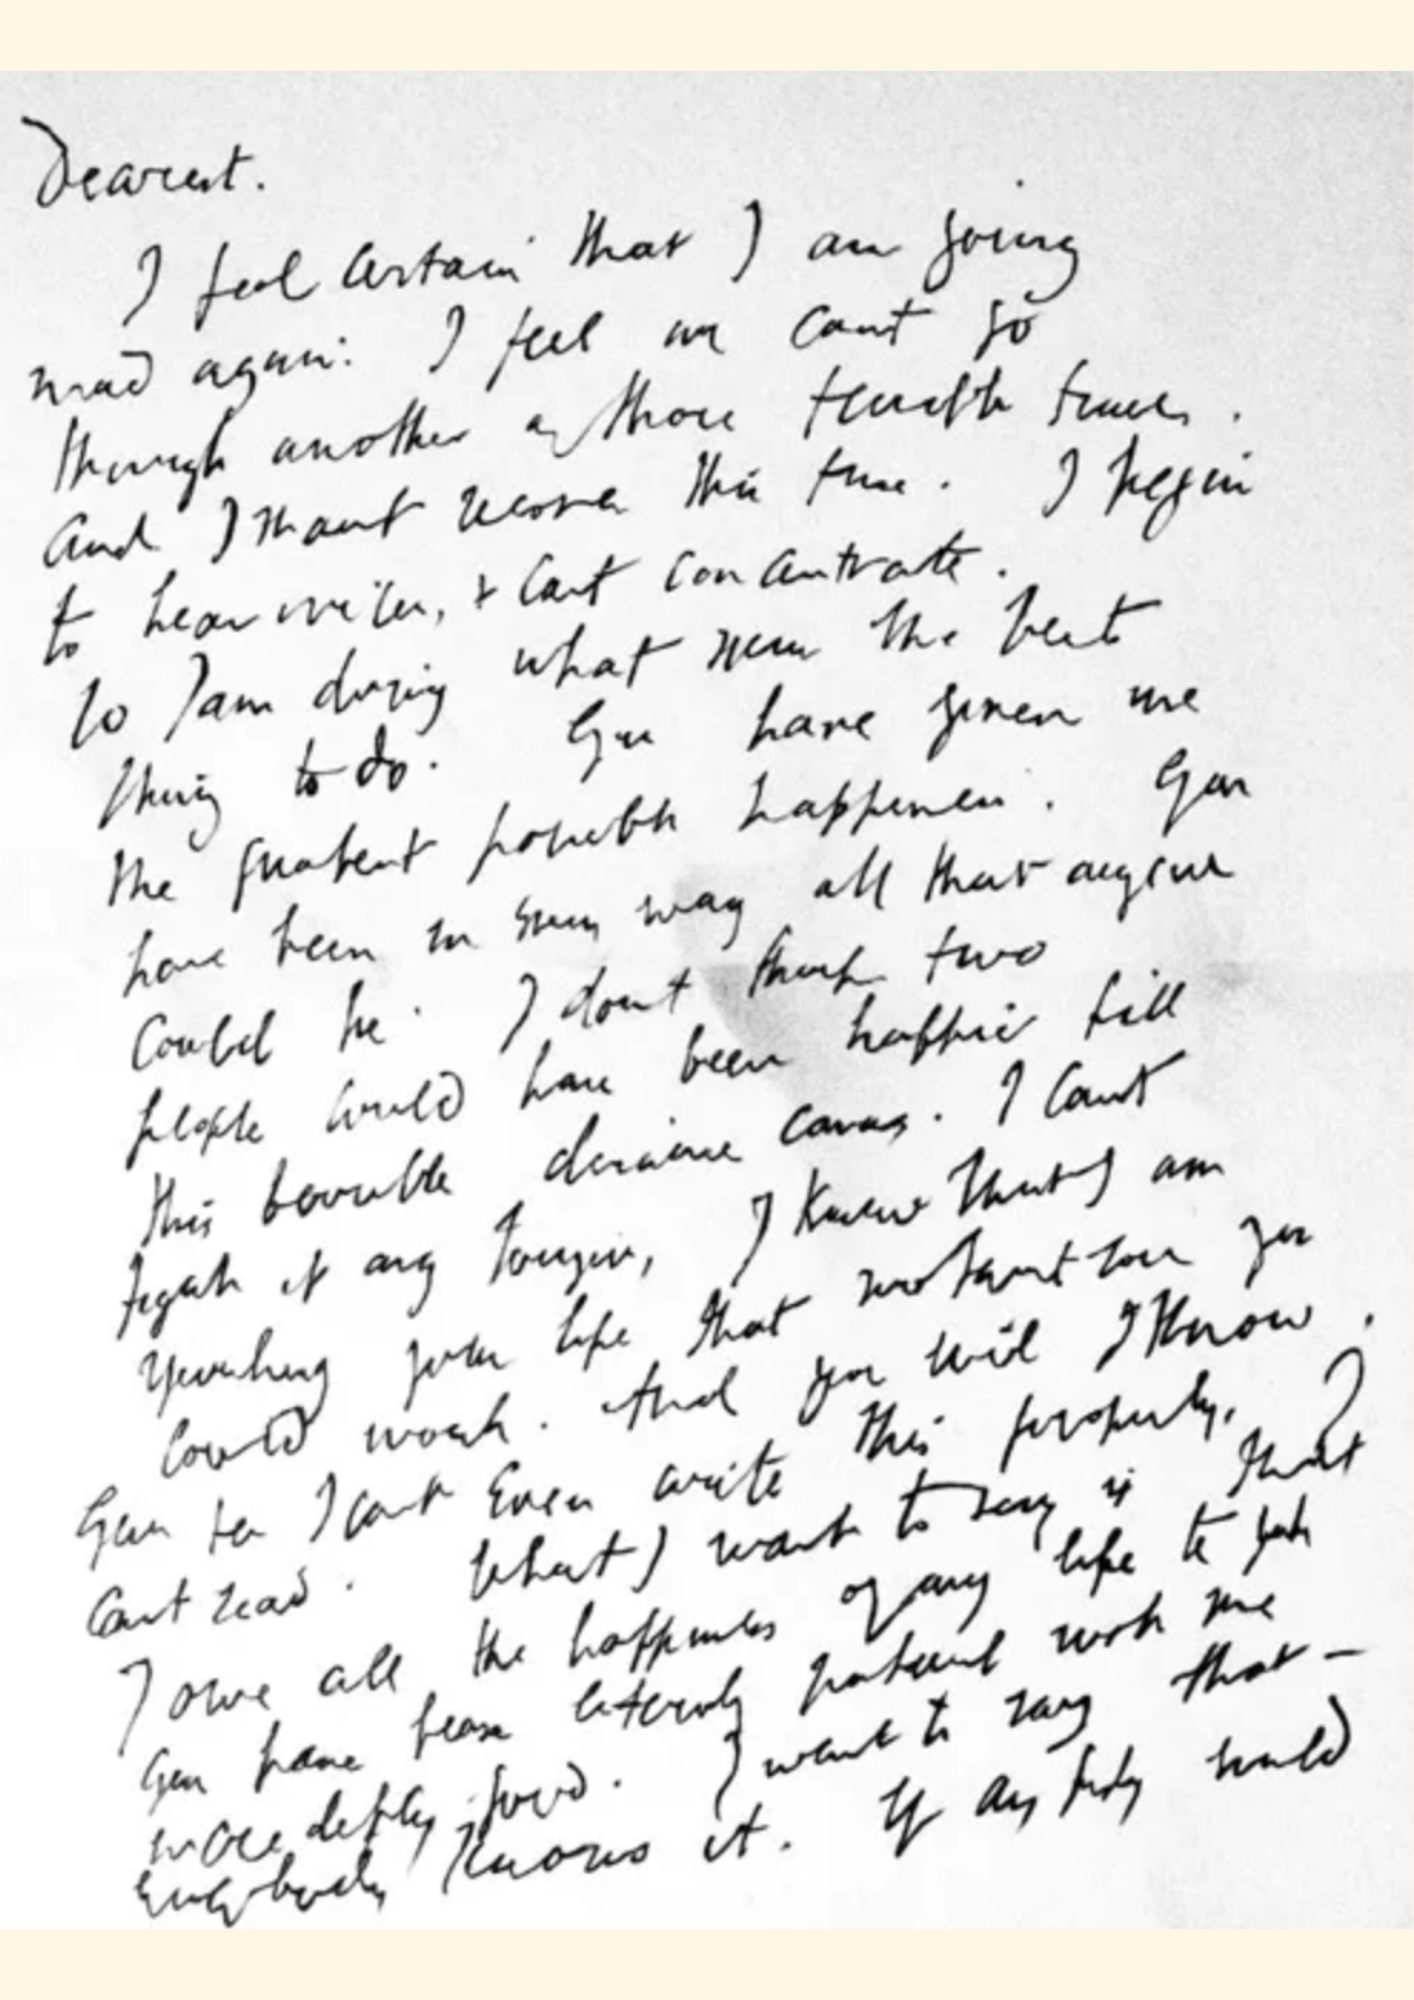 Dearest.
I feel certain that I am going
mad again: I feel we cant go
through another of those terrible times.
And I shant recover this time. I begin
to hear voices, & cant concentrate.
So I am doing what seems the best
thing to do. You have given me
the greatest possible happiness. You
have been in every way all that anyone
could be. I dont think two
people could have been happier till
this terrible disease came. I cant
fight it any longer, I know that I am
spoiling your life that without me you
could work. And you will I know.
You see I cant even write this properly. I
cant read. What I want to say is that
I owe all the happiness of my life to you
You have been entirely patient with me
& incredibly good. I want to say that –
everybody knows it. If anybody could